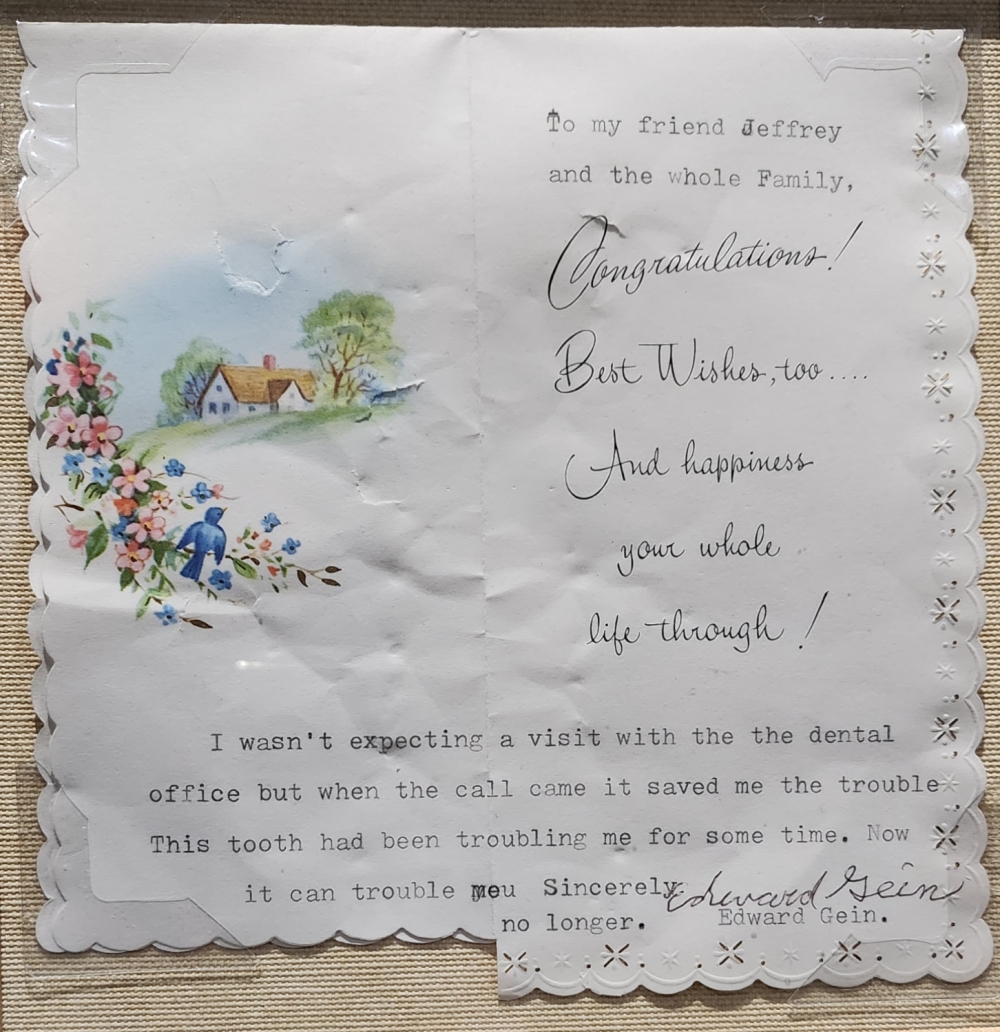 To my friend Jeffrey
and the whole Family,
Congratulations!
Best Wishes, too....
And happiness
your whole
life through!
I wasn't expecting a visit with the the dental
office but when the call came it saved me the trouble
This tooth had been troubling me for some time. Now
it can trouble meu Sincerely Edward Gein
no longer. Edward Gein.